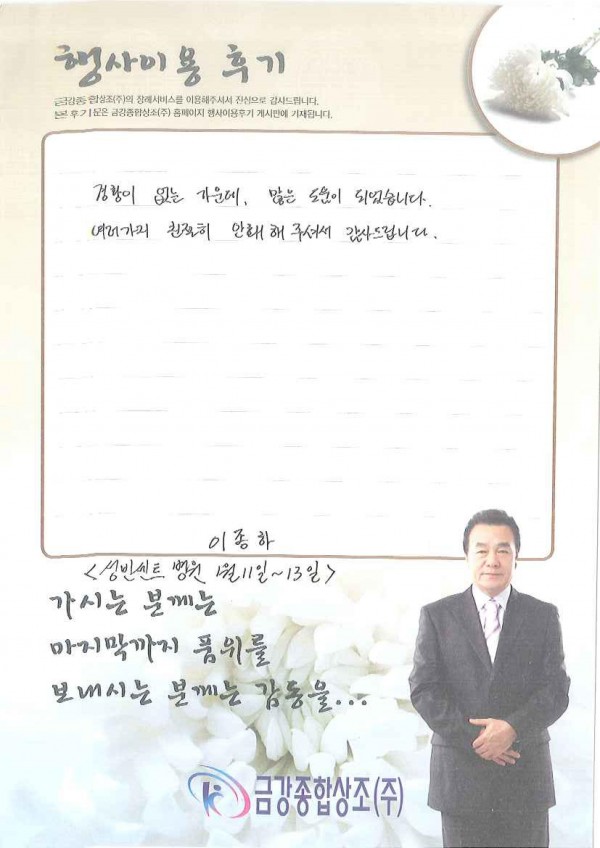 행사이용 후기
금강종합상조(주)의 장례서비스를 이용해주셔서 진심으로 감사드립니다.
본 후기문은 금강종합상조(주) 홈페이지 행사이용후기 게시판에 기재됩니다.
경황이 없는 가운데, 많은 도움이 되었습니다.
여러가지 친절히 안내해 주셔서 감사드립니다.
이종하
<성빈센트 병원 1월11일~13일>
가시는 분께는
마지막까지 품위를
보내시는 분께는 감동을...
금강종합상조(주)